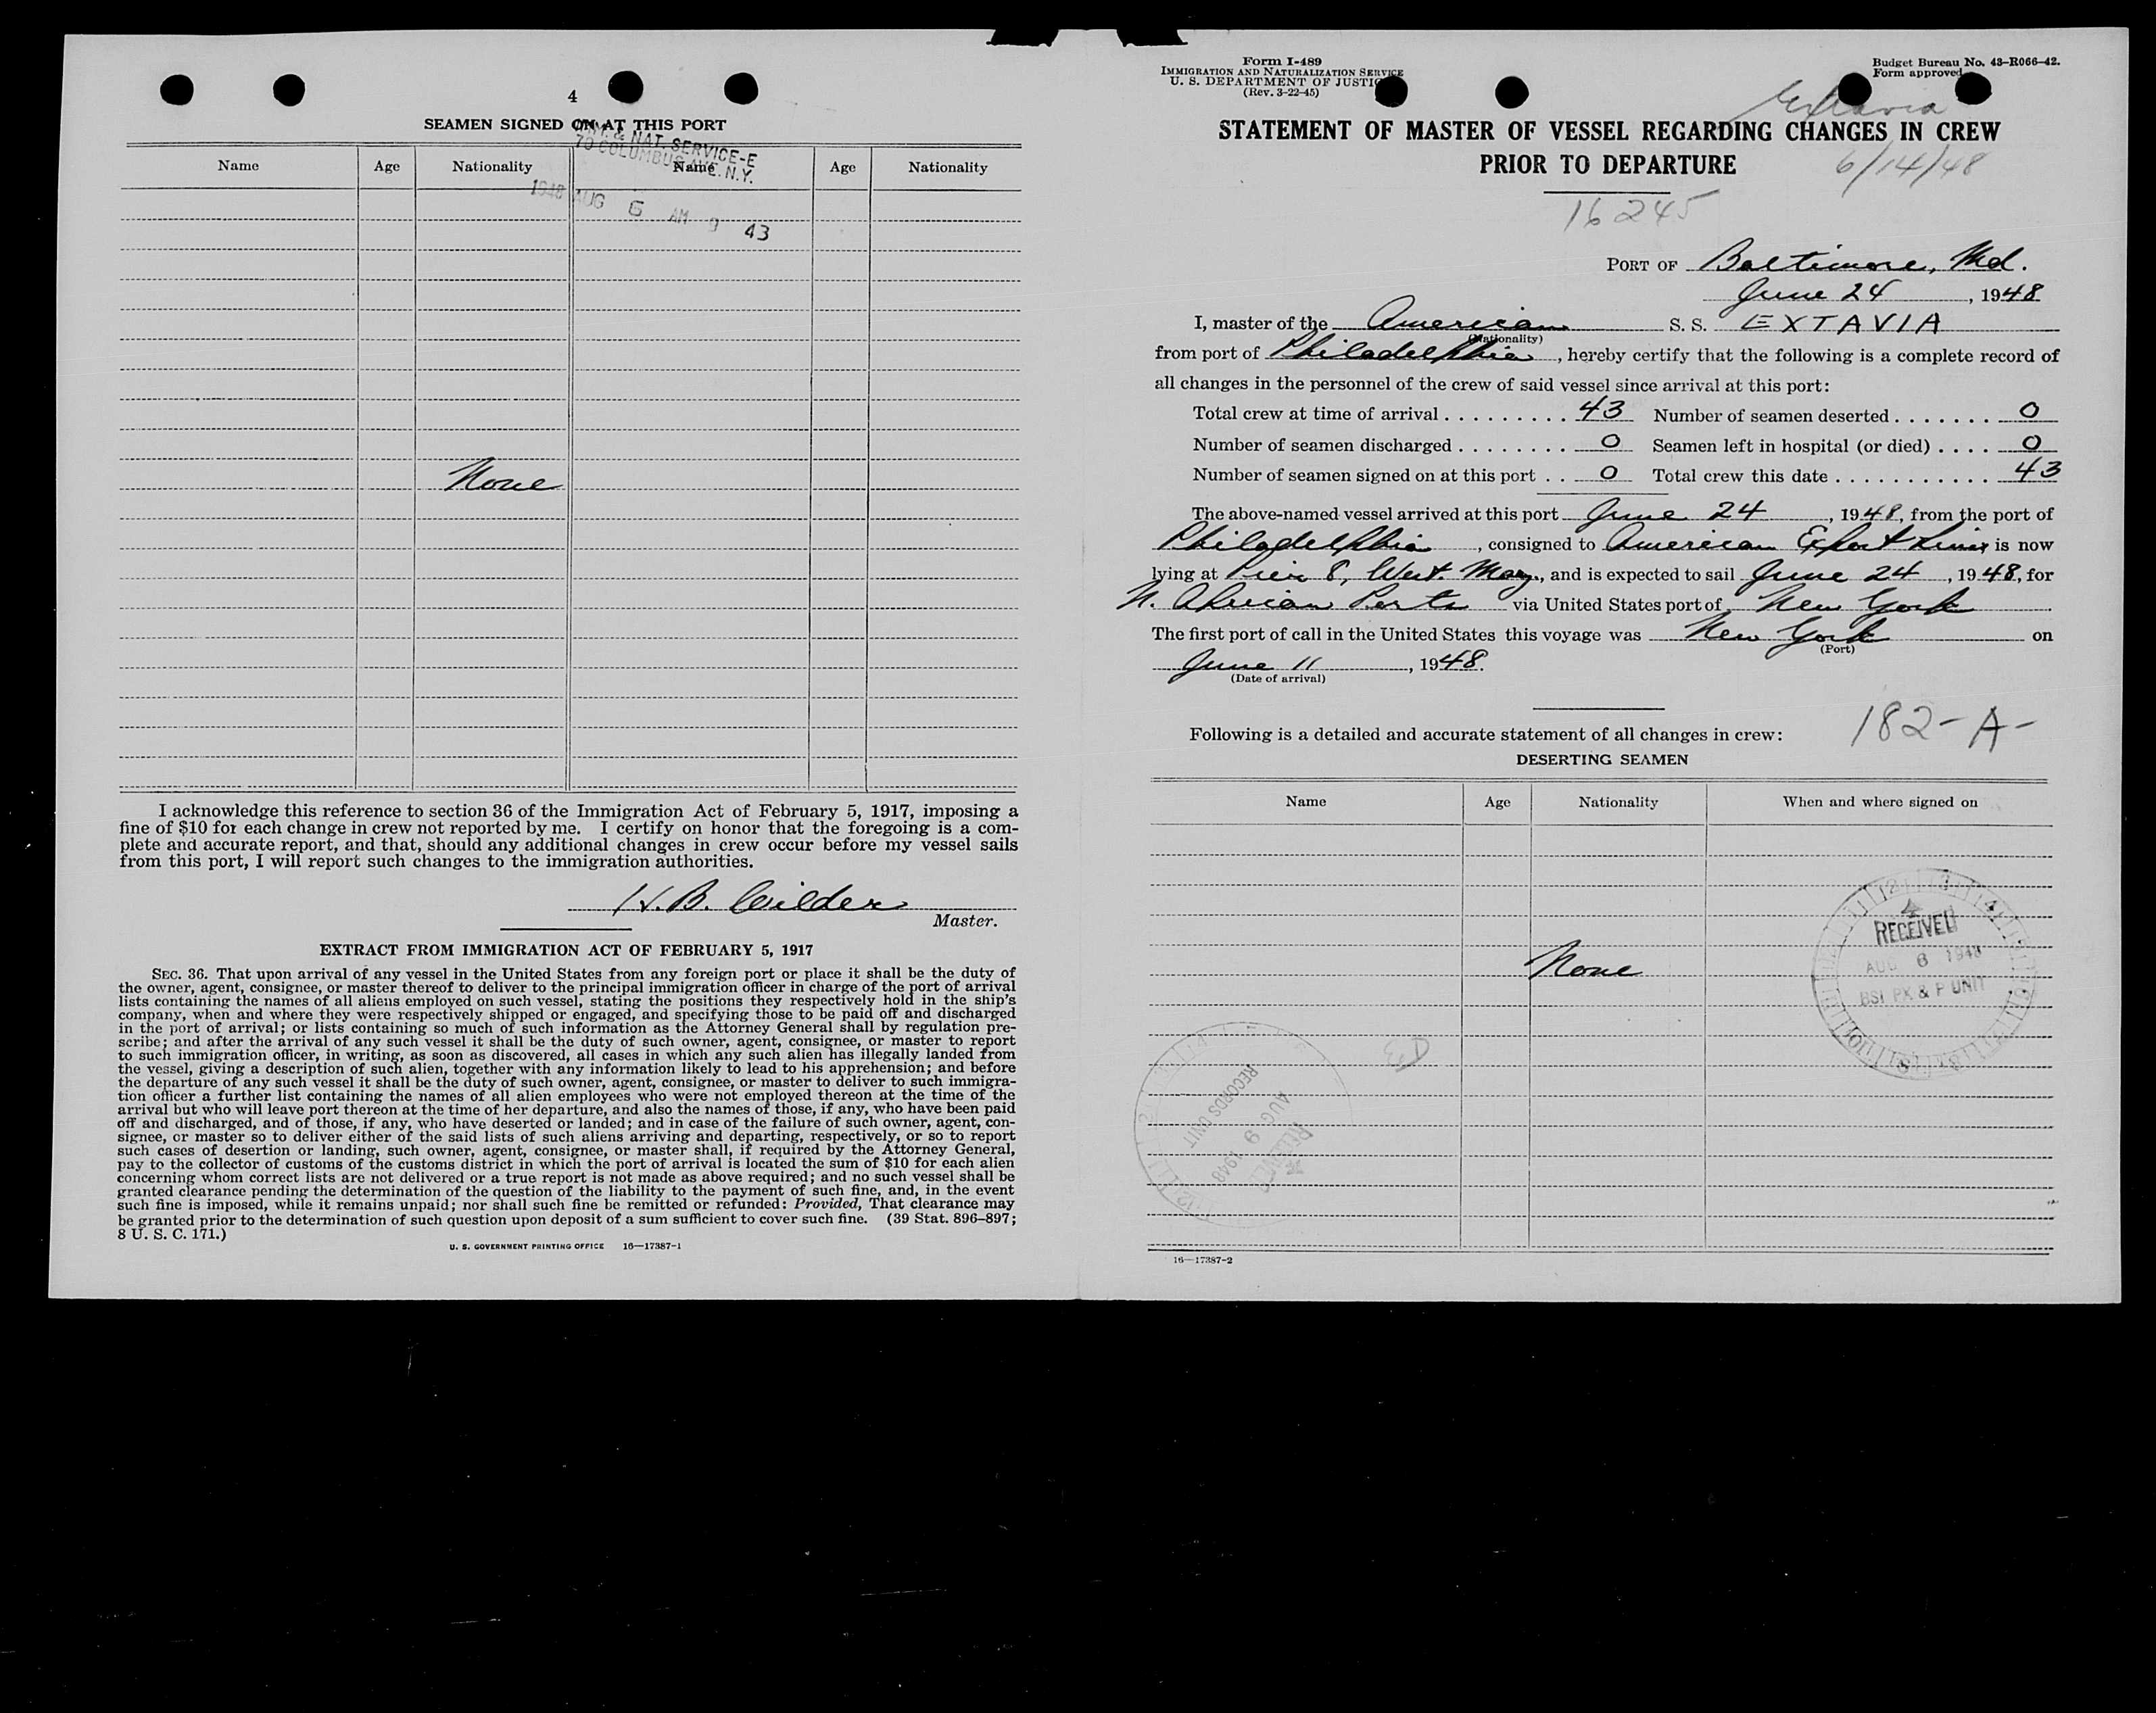 4
SEAMEN SIGNED ON AT THIS PORT
IMM. & NAT. SERVICE-E
70 COLUMBUS AVE. N.Y.
1948 AUG 6 AM 9 43
Name Age Nationality Name Age Nationality
None
I acknowledge this reference to section 36 of the Immigration Act of February 5, 1917, imposing a
fine of $10 for each change in crew not reported by me. I certify on honor that the foregoing is a com-
plete and accurate report, and that, should any additional changes in crew occur before my vessel sails
from this port, I will report such changes to the immigration authorities.
H. B. Wilder
Master.
EXTRACT FROM IMMIGRATION ACT OF FEBRUARY 5, 1917
SEC. 36. That upon arrival of any vessel in the United States from any foreign port or place it shall be the duty of
the owner, agent, consignee, or master thereof to deliver to the principal immigration officer in charge of the port of arrival
lists containing the names of all aliens employed on such vessel, stating the positions they respectively hold in the ship's
company, when and where they were respectively shipped or engaged, and specifying those to be paid off and discharged
in the port of arrival; or lists containing so much of such information as the Attorney General shall by regulation pre-
scribe; and after the arrival of any such vessel it shall be the duty of such owner, agent, consignee, or master to report
to such immigration officer, in writing, as soon as discovered, all cases in which any such alien has illegally landed from
the vessel, giving a description of such alien, together with any information likely to lead to his apprehension; and before
the departure of any such vessel it shall be the duty of such owner, agent, consignee, or master to deliver to such immigra-
tion officer a further list containing the names of all alien employees who were not employed thereon at the time of the
arrival but who will leave port thereon at the time of her departure, and also the names of those, if any, who have been paid
off and discharged, and of those, if any, who have deserted or landed; and in case of the failure of such owner, agent, con-
signee, or master so to deliver either of the said lists of such aliens arriving and departing, respectively, or so to report
such cases of desertion or landing, such owner, agent, consignee, or master shall, if required by the Attorney General,
pay to the collector of customs of the customs district in which the port of arrival is located the sum of $10 for each alien
concerning whom correct lists are not delivered or a true report is not made as above required; and no such vessel shall be
granted clearance pending the determination of the question of the liability to the payment of such fine, and, in the event
such fine is imposed, while it remains unpaid; nor shall such fine be remitted or refunded: Provided, That clearance may
be granted prior to the determination of such question upon deposit of a sum sufficient to cover such fine. (39 Stat. 896–897;
8 U. S. C. 171.)
U. S. GOVERNMENT PRINTING OFFICE 16—17387-1
Form I-489
IMMIGRATION AND NATURALIZATION SERVICE
U. S. DEPARTMENT OF JUSTICE
(Rev. 3-22-45)
Budget Bureau No. 43–R066–42.
Form approved
Extavia
STATEMENT OF MASTER OF VESSEL REGARDING CHANGES IN CREW
PRIOR TO DEPARTURE
6/14/48
16245
PORT OF Baltimore, Md.
June 24, 1948
I, master of the American S. S. EXTAVIA
(Nationality)
from port of Philadelphia, hereby certify that the following is a complete record of
all changes in the personnel of the crew of said vessel since arrival at this port:
Total crew at time of arrival . . . . . . . . . 43 Number of seamen deserted . . . . . . . 0
Number of seamen discharged . . . . . . . . 0 Seamen left in hospital (or died) . . . . 0
Number of seamen signed on at this port . . 0 Total crew this date . . . . . . . . . . . 43
The above-named vessel arrived at this port June 24, 1948, from the port of
Philadelphia, consigned to American Export Lines is now
lying at Pier 8, West. Mary., and is expected to sail June 24, 1948, for
N. African Ports via United States port of New York
The first port of call in the United States this voyage was New York on
(Port)
June 11, 1948.
(Date of arrival)
182-A-
Following is a detailed and accurate statement of all changes in crew:
DESERTING SEAMEN
Name Age Nationality When and where signed on
None
RECEIVED
AUG 6 1948
BSI PX & P UNIT
RECEIVED
AUG 9 1948
RECORDS UNIT
16—17387-2